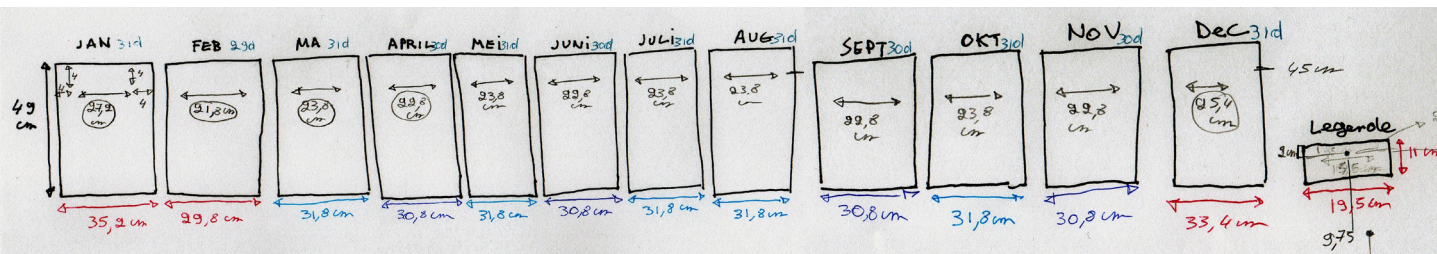 JAN 31d
FEB 29d
MA 31d
APRIL 30d
MEI 31d
JUNI 30d
JULI 31d
AUG 31d
SEPT 30d
OKT 31d
NOV 30d
DEC 31d
49 cm
4
4
4
4
27,2 cm
21,8 cm
23,8 cm
22,8 cm
23,8 cm
22,8 cm
23,8 cm
23,8 cm
22,8 cm
23,8 cm
22,8 cm
25,4 cm
45 cm
Legende
2cm
11 cm
15,5 cm
35,2 cm
29,8 cm
31,8 cm
30,8 cm
31,8 cm
30,8 cm
31,8 cm
31,8 cm
30,8 cm
31,8 cm
30,8 cm
33,4 cm
19,5 cm
9,75